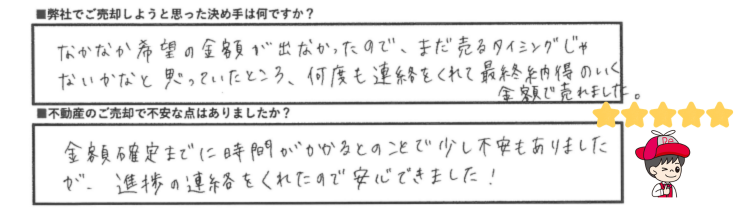 ■弊社でご売却しようと思った決め手は何ですか？
なかなか希望の金額が出なかったので、まだ売るタイミングじゃ
ないかなと思っていたところ、何度も連絡をくれて最終納得のいく
金額で売れました。
■不動産のご売却で不安な点はありましたか？
金額確定までに時間がかかるとのことで少し不安もありました
が、進捗の連絡をくれたので安心できました！